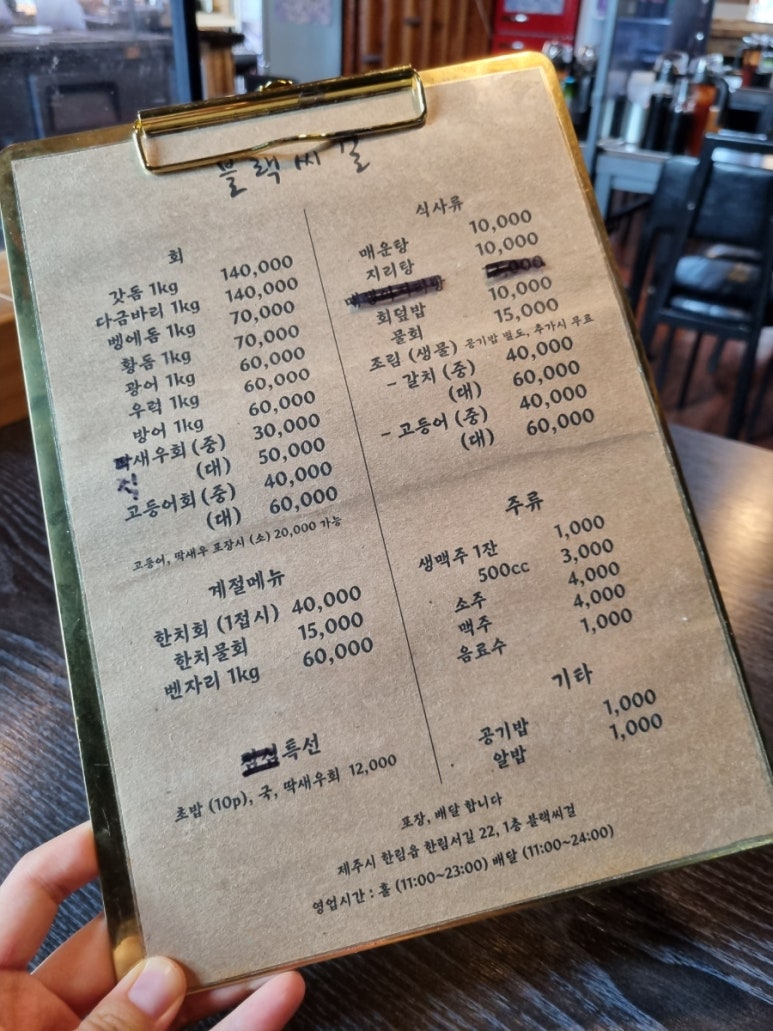 블랙씨걸
회
갓돔 1kg 140,000
다금바리 1kg 140,000
벵에돔 1kg 70,000
황돔 1kg 70,000
광어 1kg 60,000
우럭 1kg 60,000
방어 1kg 60,000
딱새우회 (중) 30,000
(대) 50,000
고등어회 (중) 40,000
(대) 60,000
고등어, 딱새우 포장시 (소) 20,000 가능
계절메뉴
한치회 (1접시) 40,000
한치물회 15,000
벤자리 1kg 60,000
특선
초밥 (10p), 국, 딱새우회 12,000
식사류
매운탕 10,000
지리탕 10,000
회덮밥 10,000
물회 15,000
조림 (생물) 공기밥 별도, 추가시 무료
- 갈치 (중) 40,000
(대) 60,000
- 고등어 (중) 40,000
(대) 60,000
주류
생맥주 1잔 1,000
500cc 3,000
소주 4,000
맥주 4,000
음료수 1,000
기타
공기밥 1,000
알밥 1,000
포장, 배달 합니다
제주시 한림읍 한림서길 22, 1층 블랙씨걸
영업시간 : 홀 (11:00~23:00) 배달 (11:00~24:00)